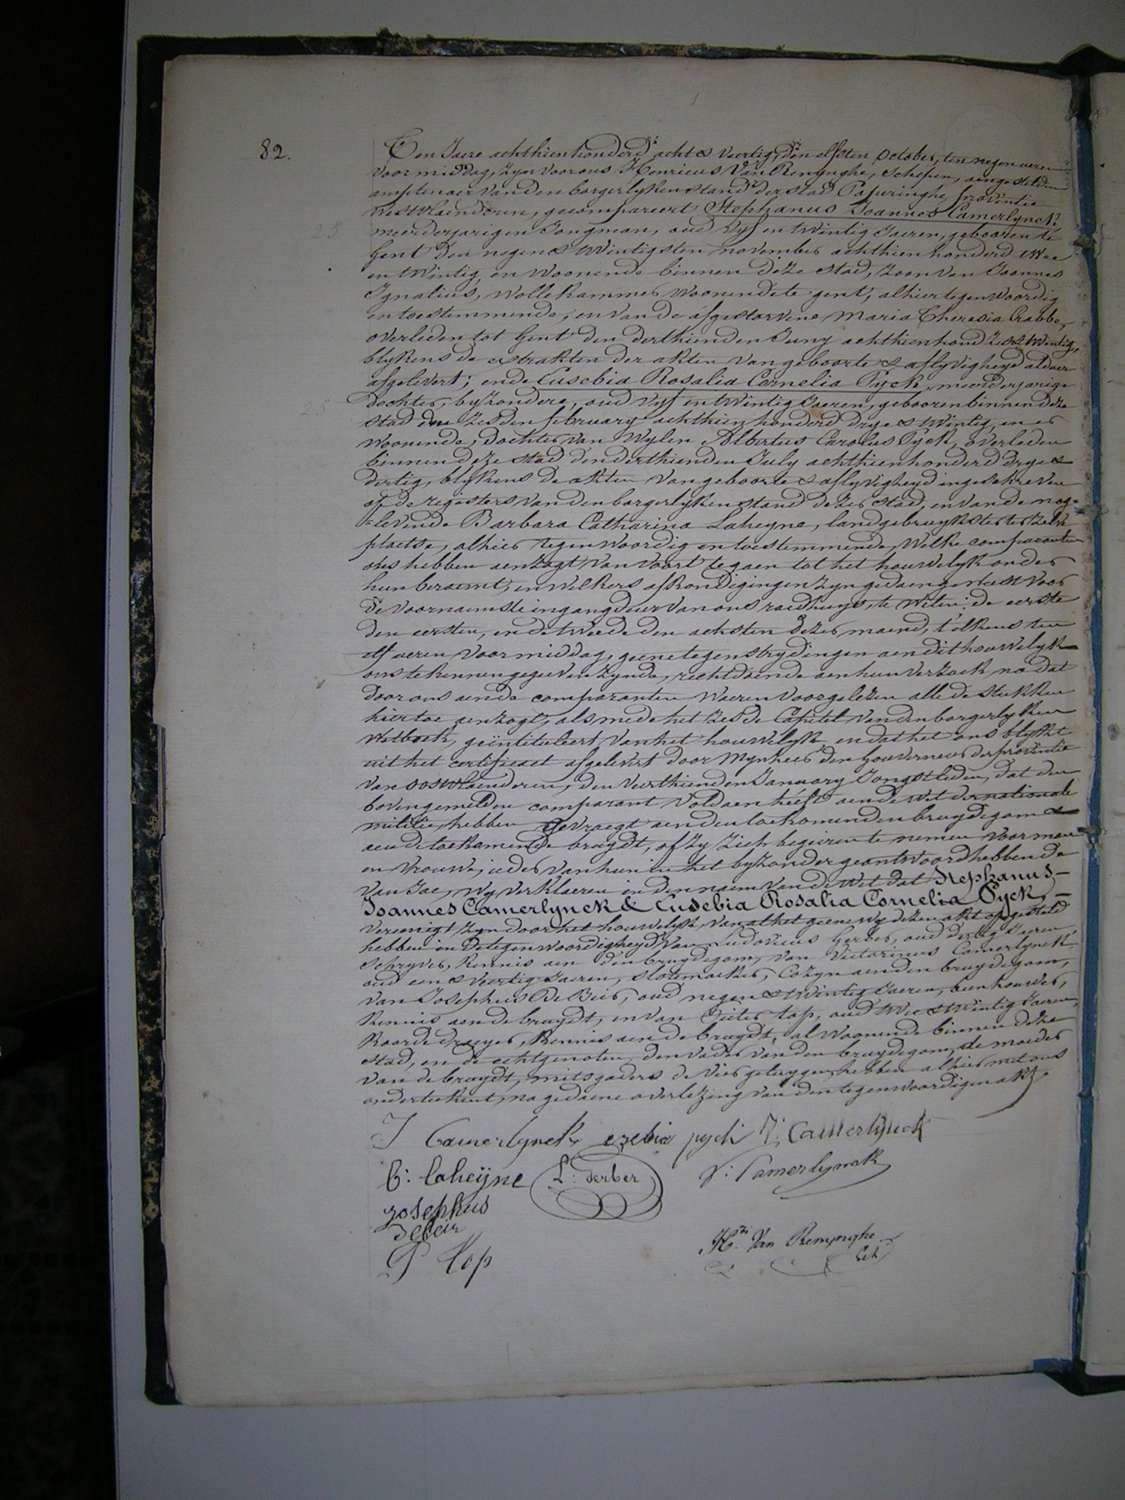 82.
Ten Jaere achthienhonderd acht & veertig, den elfsten october, ten negen uren
voormiddag, zyn voor ons Henricus Van Renynghe, Schepen, aengestelden
amptenaer van den borgerlyken stand der stad Poperinghe, provintie
Westvlaenderen, gecompareert Stephanus Joannes Camerlynck,
meerderjarigen Jongman, oud Vyf en twintig Jaeren, gebooren te
Gent den negen & twintigsten november achthien honderd twee
en twintig, en woonende binnen deze stad, zoon van Joannes
Ignatius, wollekammer woonende te gent, alhier tegenwoordig
en toestemmende; en van de afgestorvene Maria Theresia Crabbe,
overleden tot Gent den derthienden Juny achthienhond. zes & twintig,
blykens de extrakten der akten van geboorte & aflyvigheyd aldaer
afgelevert; ende Eusebia Rosalia Cornelia Pyck, meerderjarige
dochter, byzondere, oud vyf en twintig Jaeren, gebooren binnen deze
stad den zesden february achthien honderd drye & twintig, en er
woonende, dochter van wylen Albertus Carolus Pyck, overleden
binnen deze stad den derthienden July achthienhonderd drye &
dertig, blykens de akten van geboorte & aflyvigheyd ingeschreven
op de registers van den borgerlyken stand dezer stad, en van de nog
levende Barbara Catharina Laheyne, landgebruykster ter zelve
plaetse, alhier tegenwoordig en toestemmende, Welke comparanten
ons hebben aenzogt van voort te gaen tot het houwelyk onder
hun beraemt, en welkers afkondigingen zyn gedaen geweest voor
de voornaemste ingangdeur van ons raedhuys, te weten: de eerste
den eersten, en de tweede den achtsten dezer maend, telkens ten
elf uren voormiddag, geene tegenstrydingen aen dit houwelyk
ons te kennen gegeven zynde, rechtdoende aen hun verzoek, na dat
door ons aen de comparanten waeren voorgelezen all de stukken
hiertoe aenzogt, als mede het zesde Capitel van den borgerlyken
wetboek, geïntituleert, van het houwelyk, en dat het ons blykt
uit het certificaet afgelevert door Mynheer den Gouverneur der provintie
van oostvlaenderen, den veerthienden January Jongstleden, dat den
bovengemelden comparant voldaen heeft aen de wet der nationale
militie, hebben gevraegt aen den toekomenden bruydegom &
aen de toekomende bruydt, of zy zich begeiren te nemen voor man
en vrouwe, ieder van hun in het byzonder geantwoord hebbende
van Jae, wy verklaeren in den naem van de wet dat Stephanus
Joannes Camerlynck & Eusebia Rosalia Cornelia Pyck
vereenigt zyn door het houwelyk, van al het geene wy dezen akt opgesteld
hebben in de tegenwoordigheyd van Ludovicus Gerber, oud dertig Jaeren
Schryver, Kennis aen den bruydegom, van Victorinus Camerlynck
oud een & veertig Jaeren, slotemaeker, Cozyn aen den bruydegom,
van Josephus De Beir, oud negen & twintig Jaeren, beenhouwer,
Kennis aen de bruydt, en van Pieter Top, oud twee & twintig Jaeren,
Koordedraeyer, Kennis aen de bruydt, al woonende binnen deze
stad, en de echtgenoten, den vader van den bruydegom, de moeder
van de bruydt, mitsgaders de vier getuygen hebben alhier met ons
onderteekent, na gedaene overlezing van den tegenwoordigen akt.
J Camerlynck ezebia pyck J: Camerlynck
B: Laheÿne L: Gerber V: Camerlynck
Josephus
debeir
P Top
H. Van Renynghe